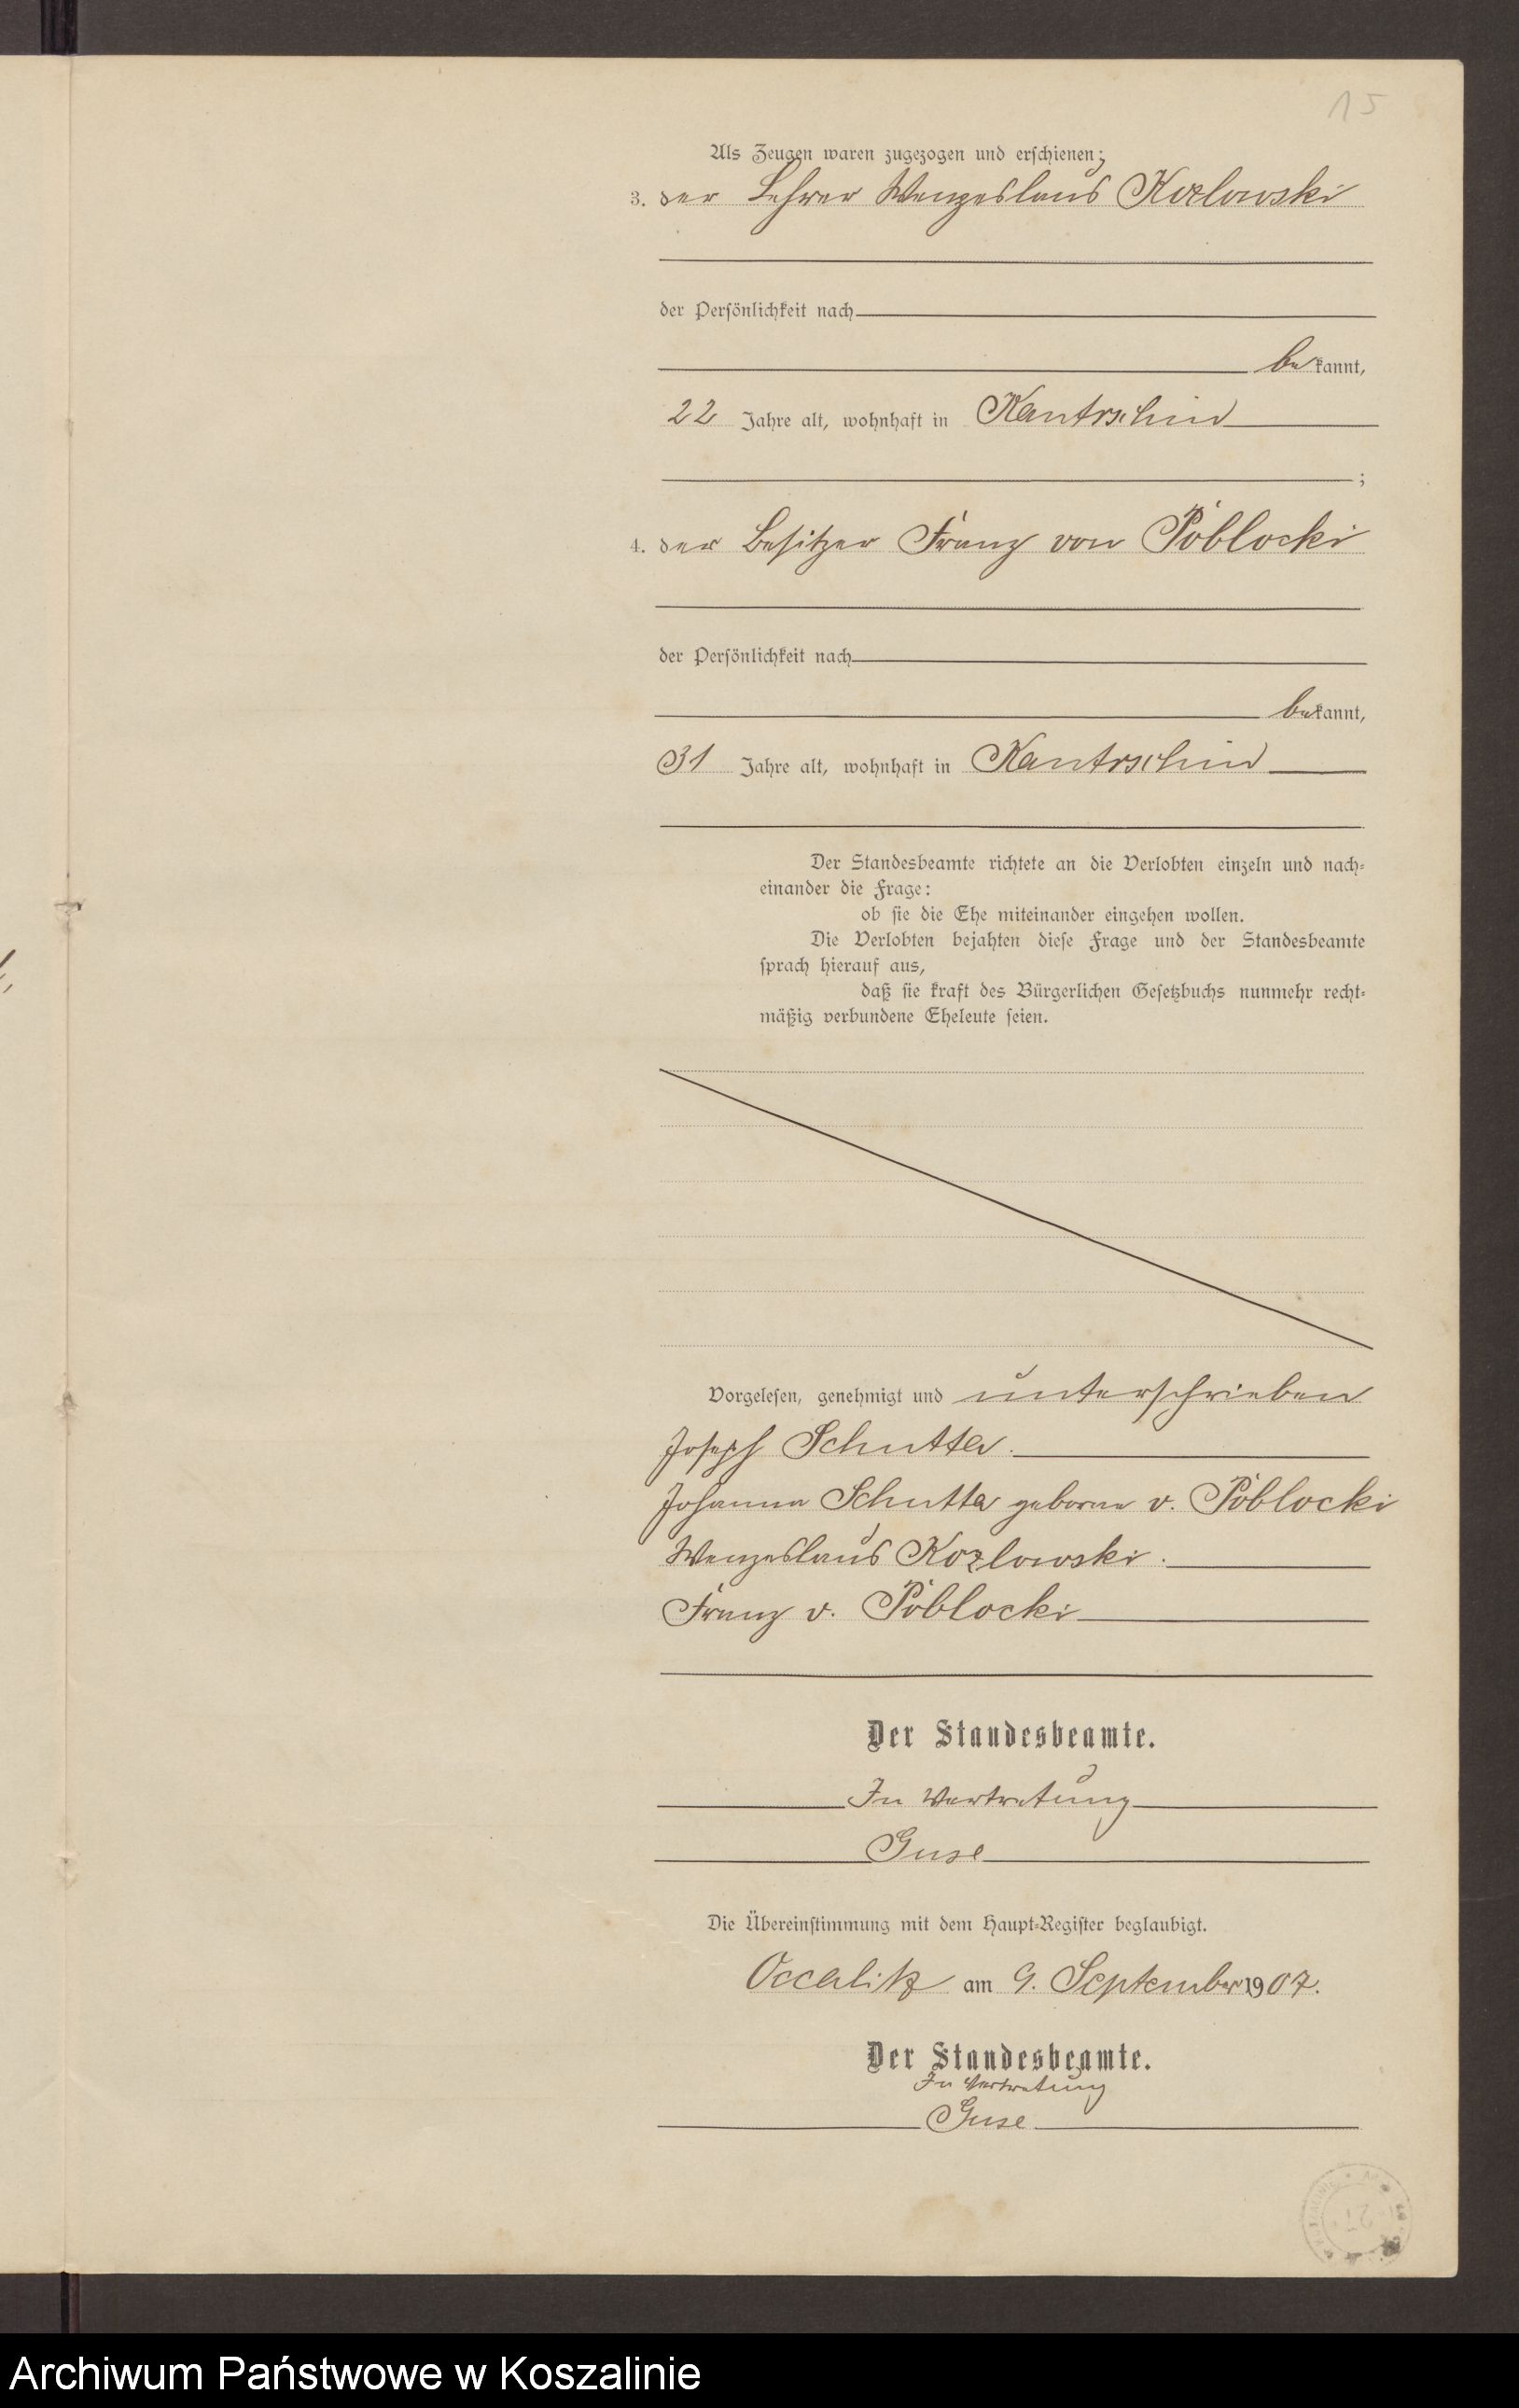 15
Als Zeugen waren zugezogen und erschienen:
3. der Lehrer Wenzeslaus Kozlowski
der Persönlichkeit nach
bekannt,
22 Jahre alt, wohnhaft in Kantrschin
;
4. der Besitzer Franz von Pöblocki
der Persönlichkeit nach
bekannt,
31 Jahre alt, wohnhaft in Kantrschin
Der Standesbeamte richtete an die Verlobten einzeln und nach-
einander die Frage:
ob sie die Ehe miteinander eingehen wollen.
Die Verlobten bejahten diese Frage und der Standesbeamte
sprach hierauf aus,
daß sie kraft des Bürgerlichen Gesetzbuchs nunmehr recht-
mäßig verbundene Eheleute seien.
Vorgelesen, genehmigt und unterschrieben
Joseph Schutta.
Johanna Schutta geborne v. Pöblocki
Wenzeslaus Kozlowski.
Franz v. Pöblocki
Der Standesbeamte.
In Vertretung
Guse
Die Übereinstimmung mit dem Haupt-Register beglaubigt.
Occalitz am 9. September 1907.
Der Standesbeamte.
In Vertretung
Guse
Archiwum Państwowe w Koszalinie